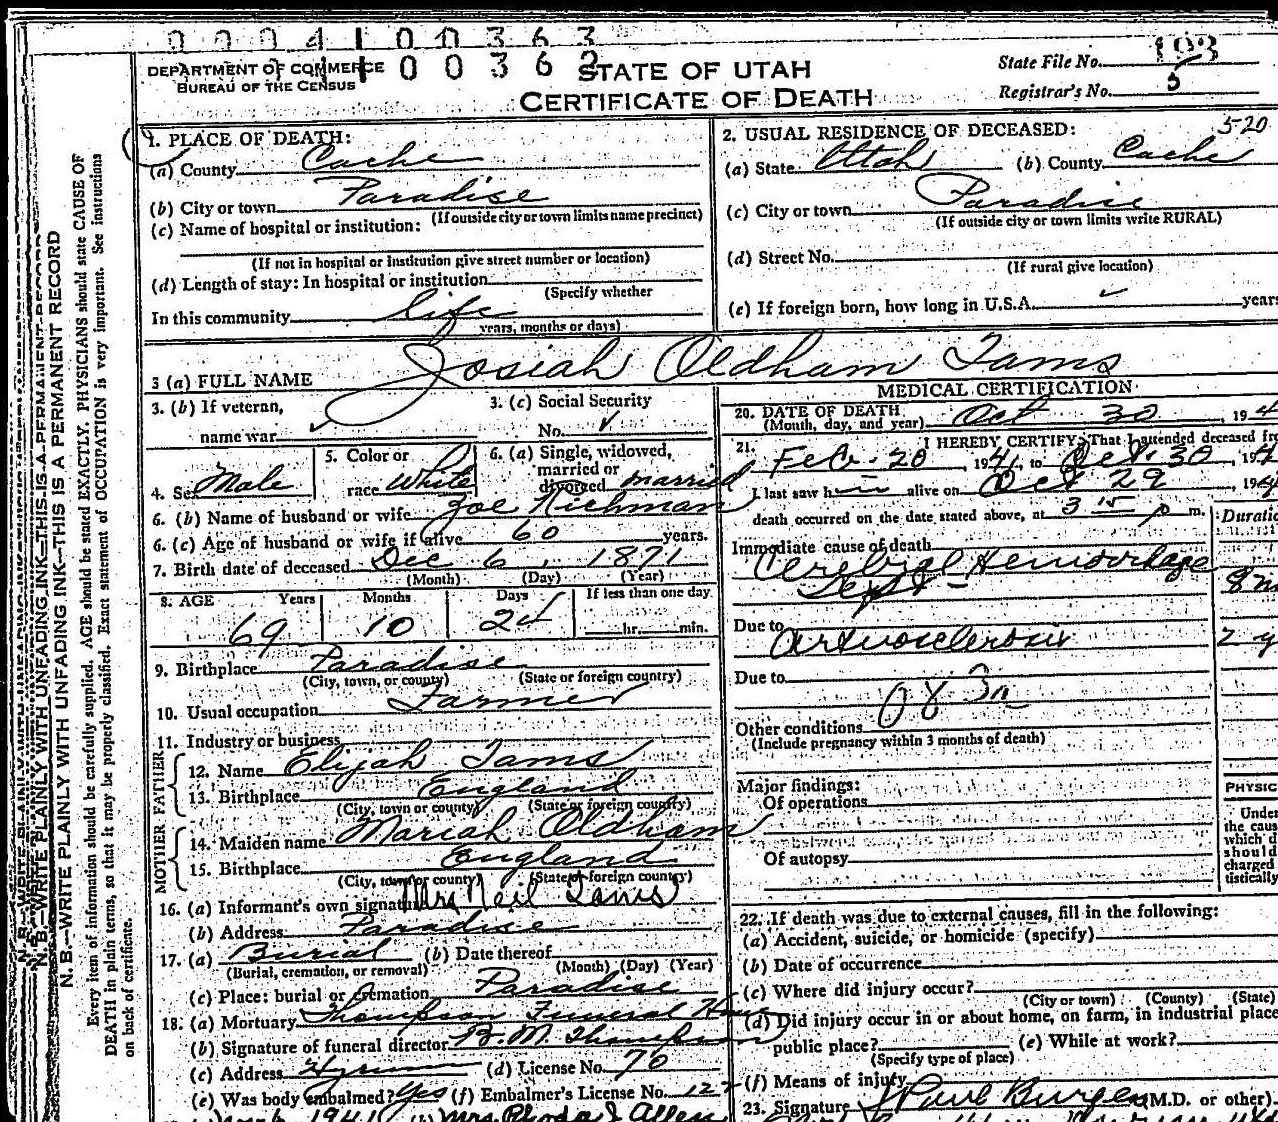 0 0 0 4 1 0 0 3 6 3
DEPARTMENT OF COMMERCE
BUREAU OF THE CENSUS
1 0 0 3 6 2
STATE OF UTAH
CERTIFICATE OF DEATH
State File No. 103
Registrar's No. 5
1. PLACE OF DEATH:
(a) County Cache
(b) City or town Paradise
(If outside city or town limits name precinct)
(c) Name of hospital or institution:
(If not in hospital or institution give street number or location)
(d) Length of stay: In hospital or institution
(Specify whether
In this community life
years, months or days)
2. USUAL RESIDENCE OF DECEASED: 520
(a) State Utah (b) County Cache
(c) City or town Paradise
(If outside city or town limits write RURAL)
(d) Street No.
(If rural give location)
(e) If foreign born, how long in U.S.A. years
3 (a) FULL NAME Josiah Oldham Tams
3. (b) If veteran,
name war
3. (c) Social Security
No.
4. Sex Male
5. Color or
race White
6. (a) Single, widowed,
married or
divorced married
6. (b) Name of husband or wife Zoe Richman
6. (c) Age of husband or wife if alive 60 years.
7. Birth date of deceased Dec 6, 1871
(Month) (Day) (Year)
8. AGE Years Months Days If less than one day
69 10 24 hr. min.
9. Birthplace Paradise
(City, town, or county) (State or foreign country)
10. Usual occupation Farmer
11. Industry or business
FATHER
12. Name Elijah Tams
13. Birthplace England
(City, town or county) (State or foreign country)
MOTHER
14. Maiden name Mariah Oldham
15. Birthplace England
(City, town or county) (State or foreign country)
16. (a) Informant's own signature Mrs Neil Tams
(b) Address Paradise
17. (a) Burial (b) Date thereof
(Burial, cremation, or removal) (Month) (Day) (Year)
(c) Place: burial or cremation Paradise
18. (a) Mortuary Thompson Funeral Home
(b) Signature of funeral director B. M. Thompson
(c) Address Hyrum (d) License No. 70
(e) Was body embalmed? Yes (f) Embalmer's License No. 127
1941 Mrs. Rhoda J Allen
MEDICAL CERTIFICATION
20. DATE OF DEATH
(Month, day, and year) Oct 30, 194
21. I HEREBY CERTIFY, That I attended deceased
Feb. 20, 1941, to Oct. 30, 19
I last saw h alive on Oct 29, 194
death occurred on the date stated above, at 3 15 p m.
Immediate cause of death
Cerebral Hemorrhage
Sept - 8 m
Due to Arteriosclerosis 2 y
Due to
Other conditions
(Include pregnancy within 3 months of death)
Major findings:
Of operations
Of autopsy
PHYSIC
Under
the caus
which d
should
charged
tistically
22. If death was due to external causes, fill in the following:
(a) Accident, suicide, or homicide (specify)
(b) Date of occurrence
(c) Where did injury occur?
(City or town) (County) (State)
(d) Did injury occur in or about home, on farm, in industrial place
public place? (e) While at work?
(Specify type of place)
(f) Means of injury
23. Signature (M.D. or other)
N. B.—WRITE PLAINLY WITH UNFADING INK—THIS IS A PERMANENT RECORD
Every item of information should be carefully supplied. AGE should be stated EXACTLY. PHYSICIANS should state CAUSE OF
DEATH in plain terms, so that it may be properly classified. Exact statement of OCCUPATION is very important. See instructions
on back of certificate.